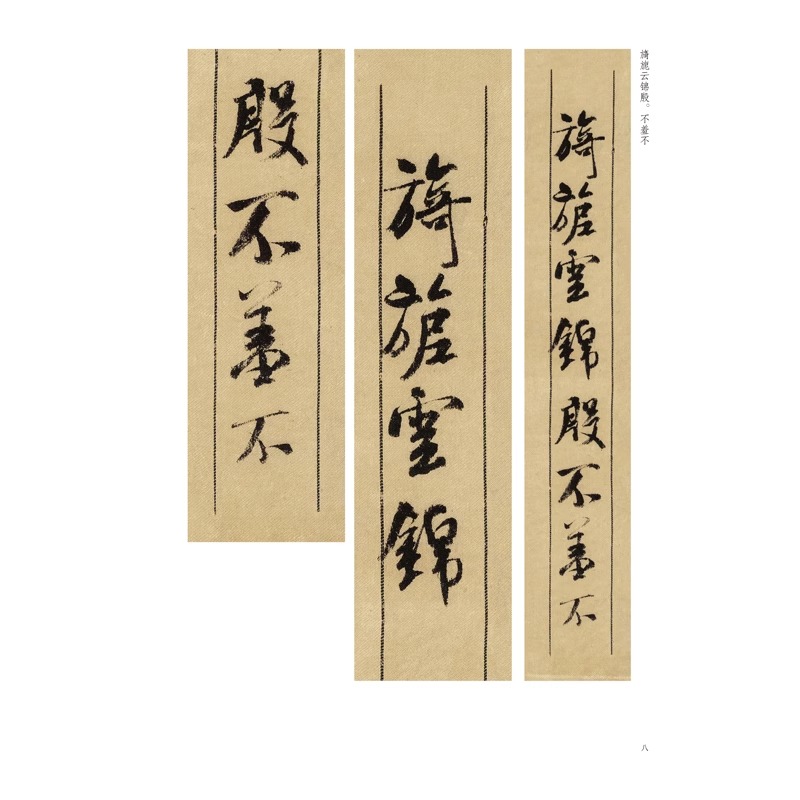 旖旎云锦殷。不羞不
旖旎雲錦殷不羞不
旖旎雲錦
殷不羞不
八